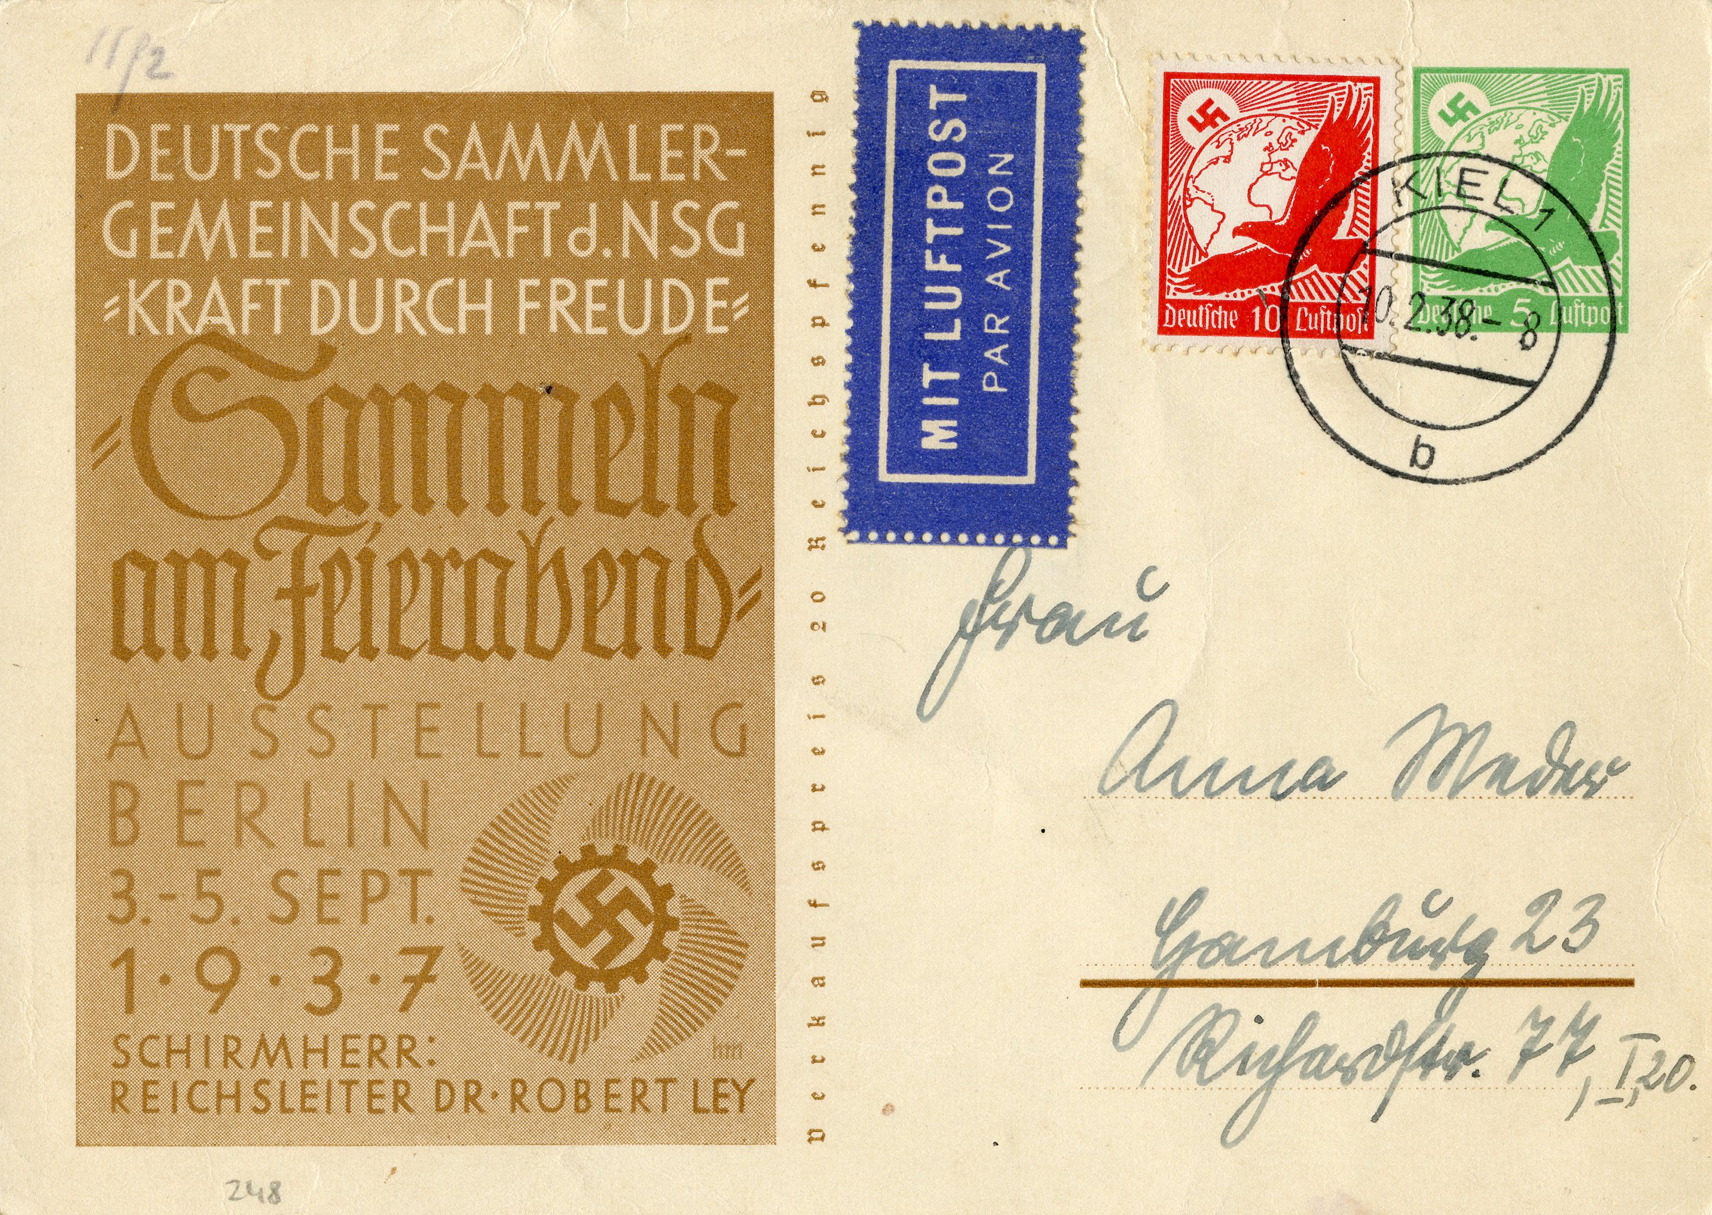 11/2
DEUTSCHE SAMMLER-
GEMEINSCHAFT d. NSG
"KRAFT DURCH FREUDE"
"Sammeln
am Feierabend"
AUSSTELLUNG
BERLIN
3.-5. SEPT.
1·9·3·7
SCHIRMHERR:
REICHSLEITER DR·ROBERT LEY
hm
248
Verkaufspreis 20 Reichspfennig
MIT LUFTPOST
PAR AVION
Deutsche 10 Luftpost
Deutsche 5 Luftpost
KIEL 1
10.2.38.-8
b
Frau
Anna Meder
Hamburg 23
Richardstr. 77, I, 20.